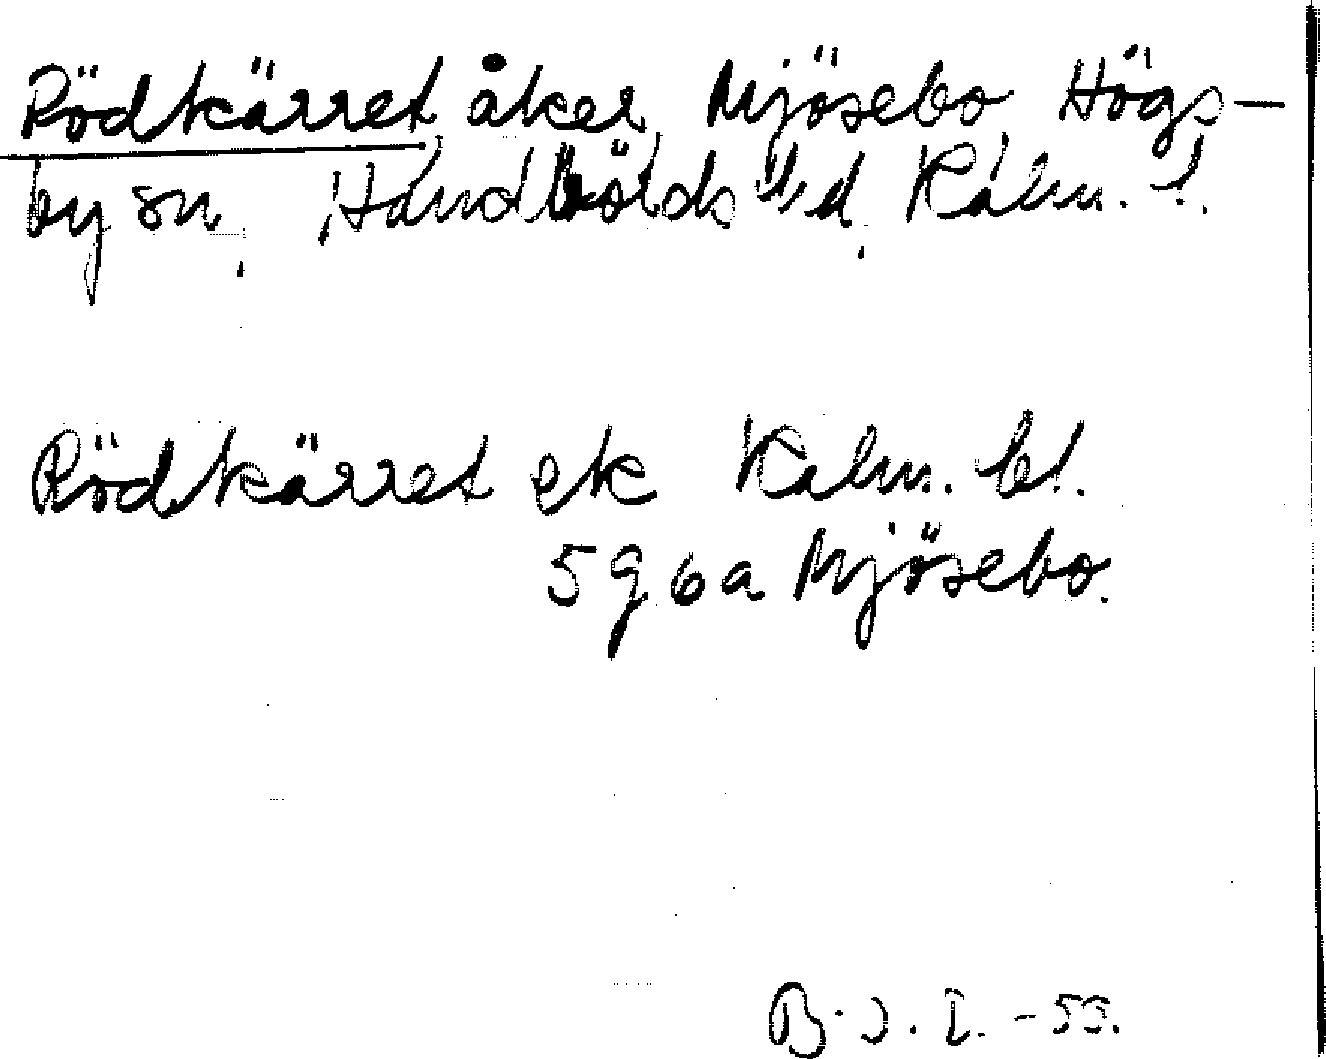 Rödkärret åker, Mjösebo Högs-
by sn, Handbörds hd, Kalm. l.
Rödkärret ek Kalm. bl.
5 g 6 a Mjösebo.
B. J. L. -55.